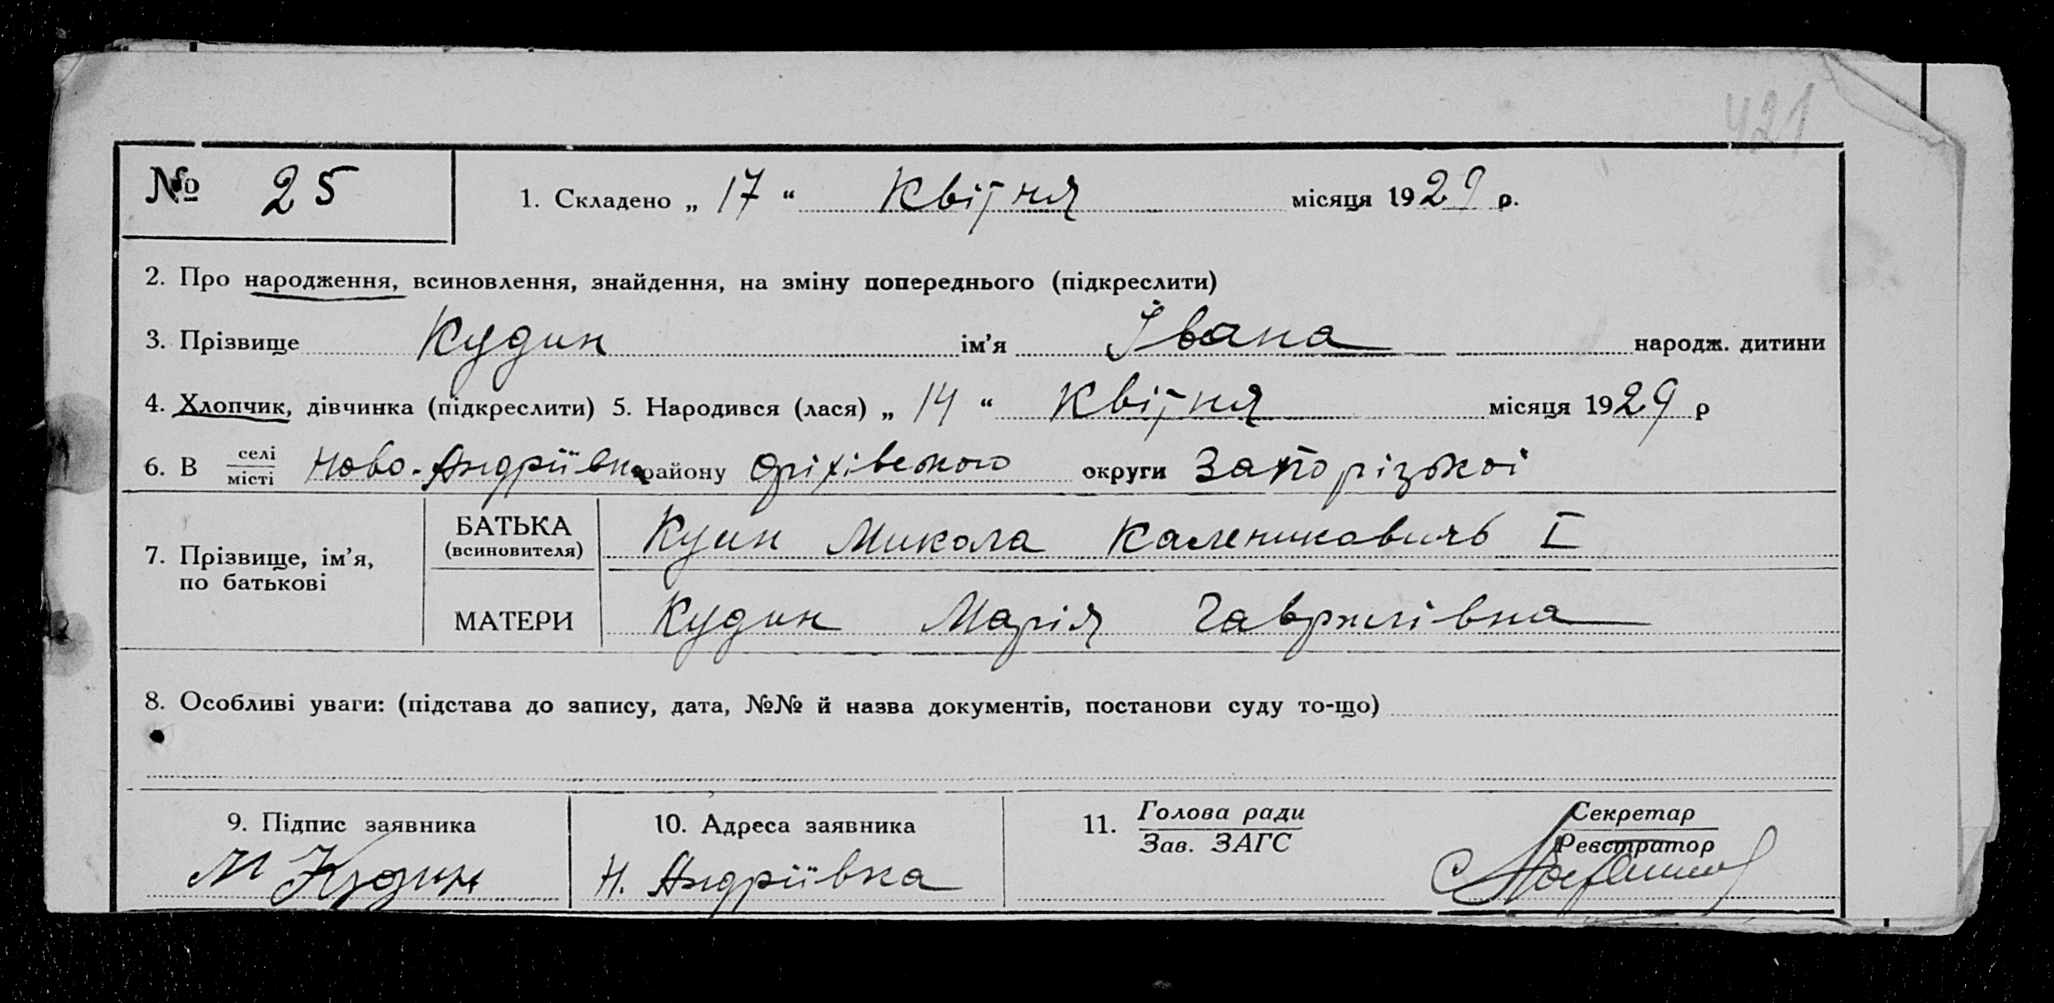 421
№ 25 1. Складено „ 17 “ Квітня місяця 1929 р.
2. Про народження, всиновлення, знайдення, на зміну попереднього (підкреслити)
3. Прізвище Кудин ім’я Івана народж. дитини
4. Хлопчик, дівчинка (підкреслити) 5. Народився (лася) „ 14 “ Квітня місяця 1929 р
6. В селі місті Ново-Андріївка району Оріхівського округи Запорізькоі
7. Прізвище, ім’я, по батькові
БАТЬКА (всиновителя) Куин Микола Каленикович І
МАТЕРИ Кудин Марія Гаврилівна
8. Особливі уваги: (підстава до запису, дата, №№ й назва документів, постанови суду то-що)
9. Підпис заявника 10. Адреса заявника 11. Голова ради Секретар
Зав. ЗАГС Реєстратор
М Кудин Н. Андріівка